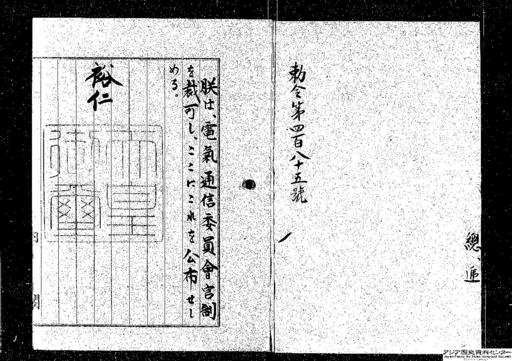 勅令第四百八十五號
總、遞
朕は、電氣通信委員會官制
を裁可し、ここにこれを公布せし
める。
裕仁
天皇
御璽
内
閣
アジア歴史資料センター